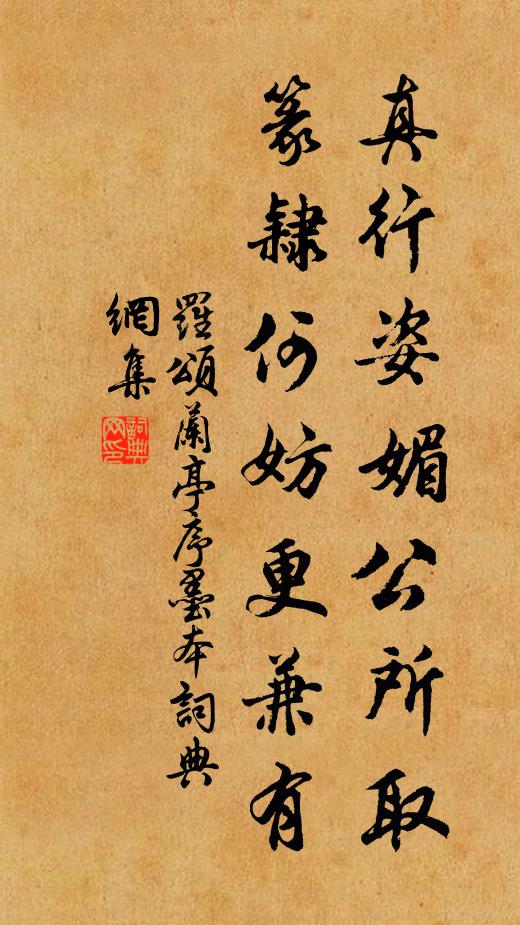 真行姿媚公所取
篆隸何妨更兼有
羅頌蘭亭序墨本詞典
網集
詞典
网印